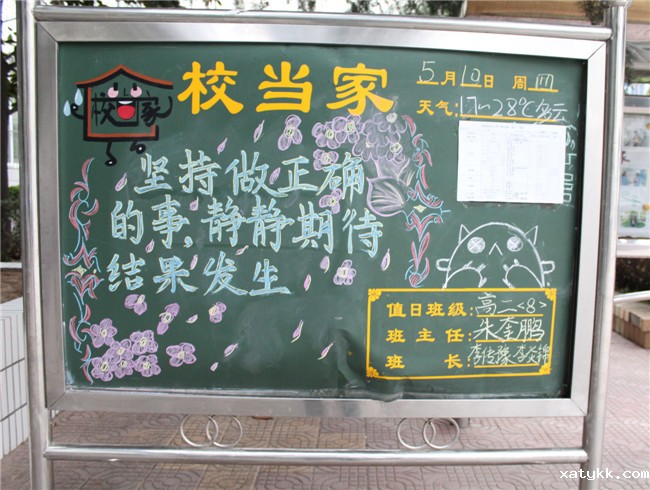 校当家
校当家
5月10日 周四
天气:17~28℃多云
坚持做正确
的事,静静期待
结果发生
值日班级:高二<8>
班主任:朱奎鹏
班长:
xatykk.com